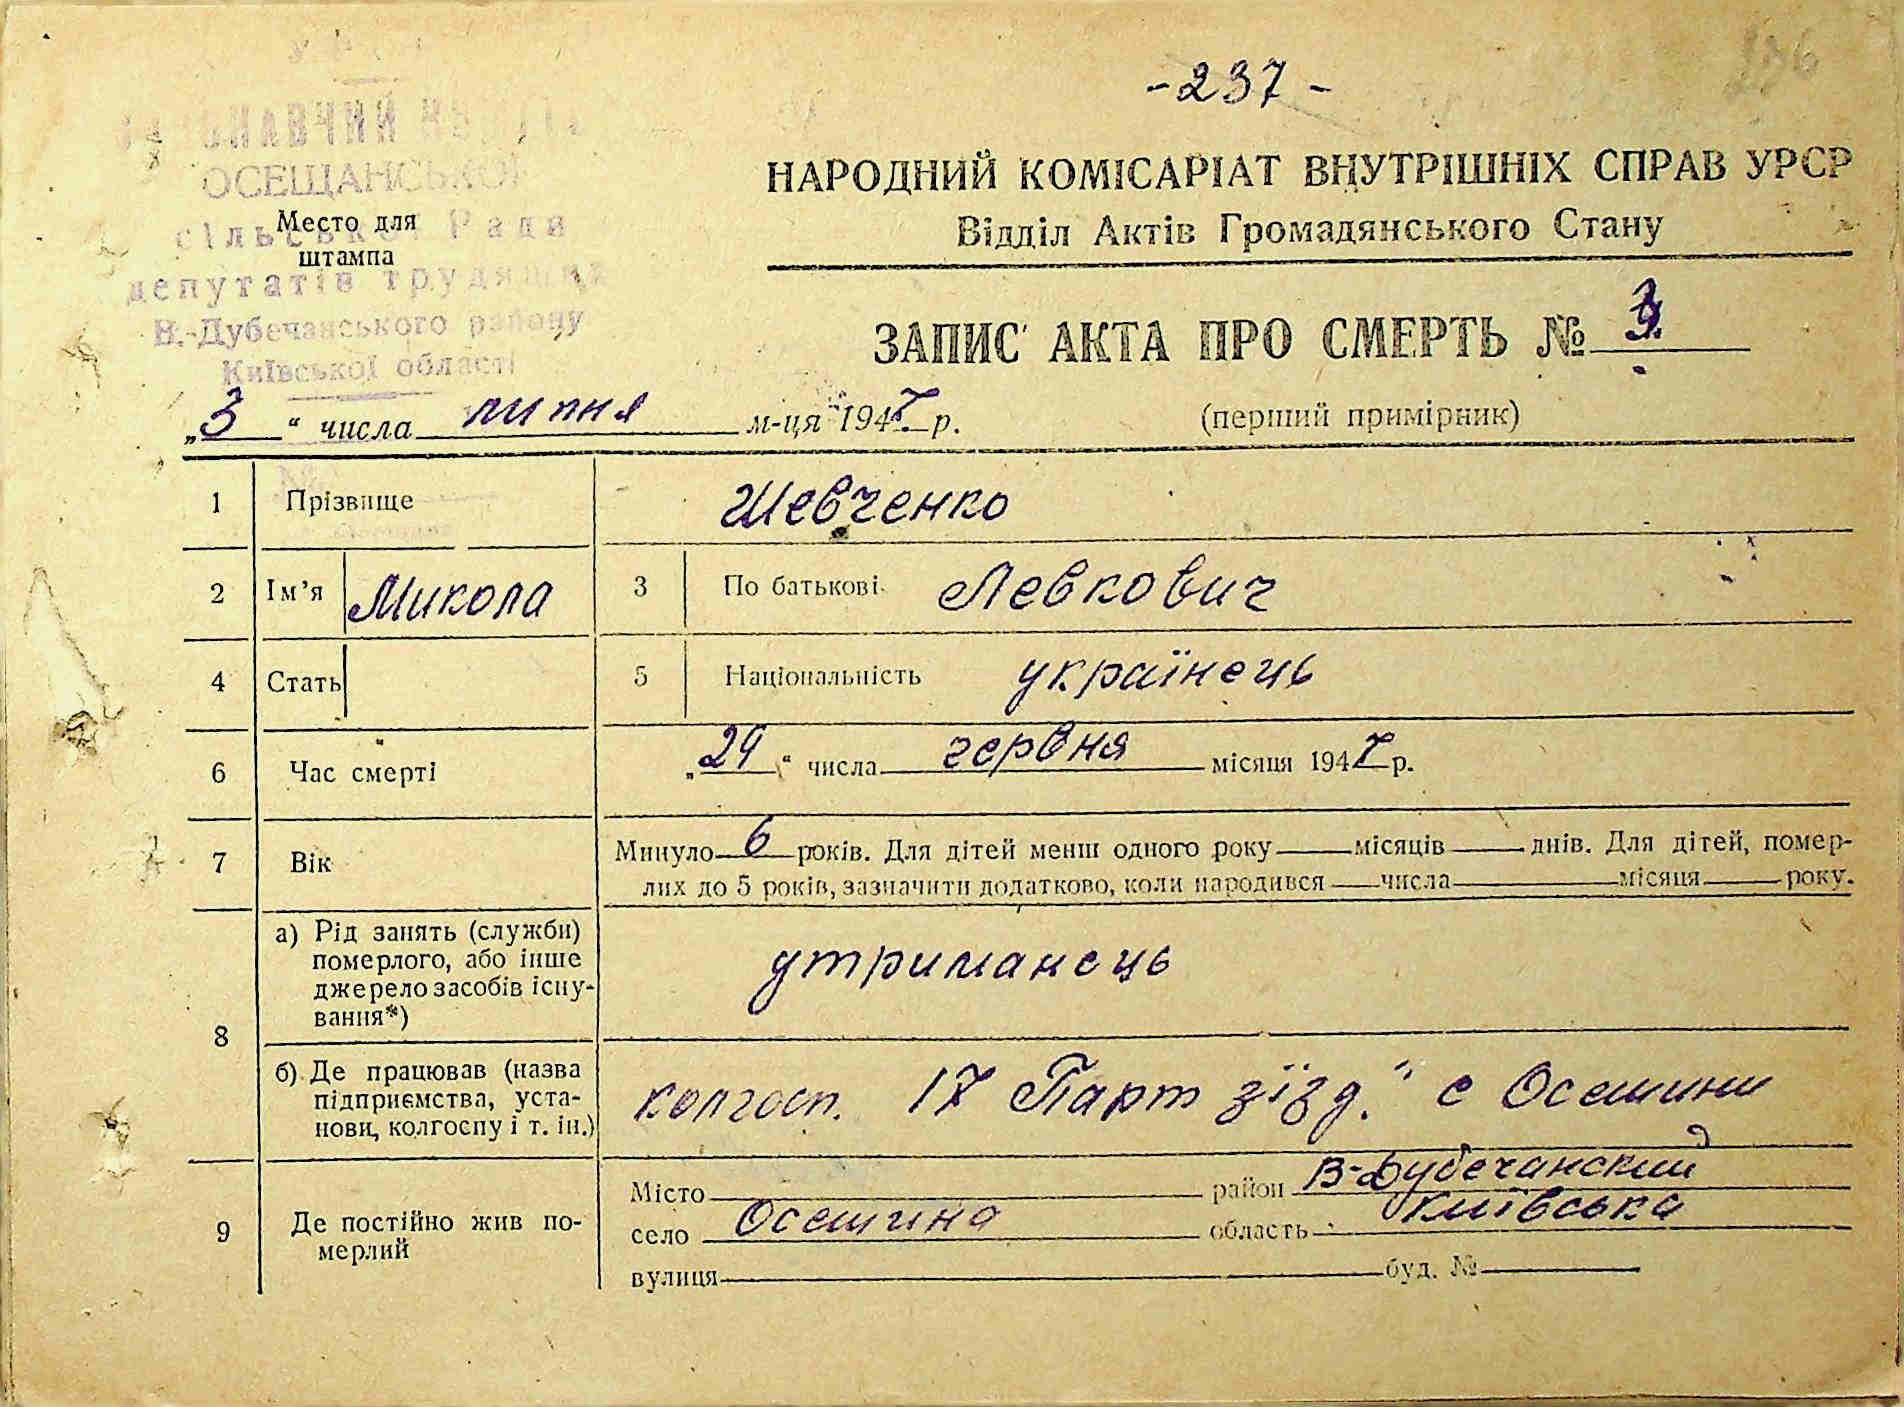 - 237 -
ОСЕЩАНСЬКОЇ
сільської Ради
депутатів трудящих
В.-Дубечанського району
Київської області
Место для
штампа
НАРОДНИЙ КОМІСАРІАТ ВНУТРІШНІХ СПРАВ УРСР
Відділ Актів Громадянського Стану
ЗАПИС АКТА ПРО СМЕРТЬ №
„3“ числа липня м-ця 1947 р.
(перший примірник)
1 Прізвище Шевченко
2 Ім’я Микола 3 По батькові Левкович
4 Стать 5 Національність українець
6 Час смерті „29“ числа червня місяця 1947 р.
7 Вік Минуло 6 років. Для дітей менш одного року місяців днів. Для дітей, помер-
лих до 5 років, зазначити додатково, коли народився числа місяця року.
8 а) Рід занять (служби)
померлого, або інше
джерело засобів існу-
вання*)
утриманець
б) Де працював (назва
підприємства, уста-
нови, колгоспу і т. ін.)
колгосп. 17 Парт зїзд." с Осещини
9 Де постійно жив по-
мерлий
Місто район В-Дубечанский
село Осещина область Київська
вулиця буд. №